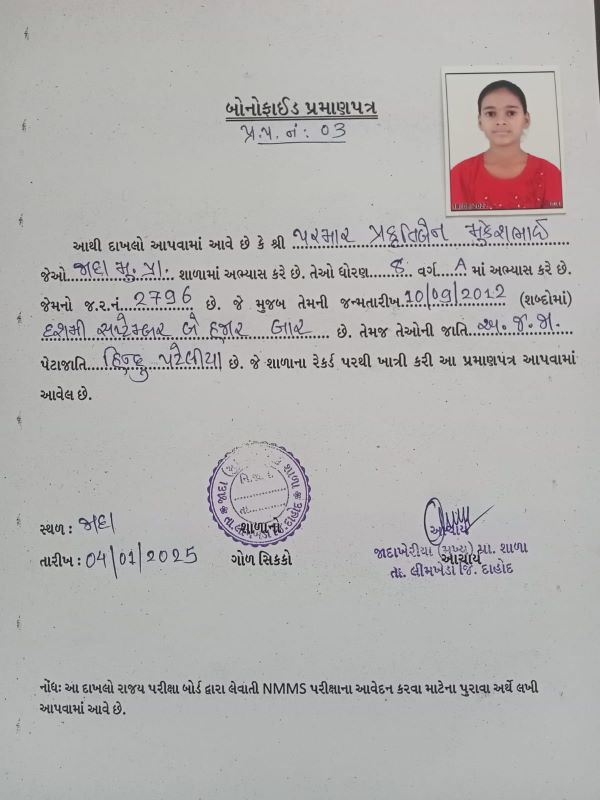 બોનોફાઈડ પ્રમાણપત્ર
પ્ર.પ. નં : 03
18/08/2022
આથી દાખલો આપવામાં આવે છે કે શ્રી પરમાર પ્રકૃતિબેન મુકેશભાઈ
જેઓ જાદા મુ. પ્રા. શાળામાં અભ્યાસ કરે છે. તેઓ ધોરણ 8 વર્ગ A માં અભ્યાસ કરે છે.
જેમનો જ.ર.નં. 2796 છે. જે મુજબ તેમની જન્મતારીખ 10/09/2012 (શબ્દોમાં)
દશમી સપ્ટેમ્બર બે હજાર બાર છે. તેમજ તેઓની જાતિ અ. જ. જા.
પેટાજાતિ હિન્દુ પટેલીયા છે. જે શાળાના રેકર્ડ પરથી ખાત્રી કરી આ પ્રમાણપત્ર આપવામાં
આવેલ છે.
સ્થળ : જાદા
તારીખ : 04/01/2025
શાળાનો
ગોળ સિક્કો
આચાર્ય
જાદાખેરીયા (મુખ્ય) પ્રા. શાળા
આચાર્ય
તા. લીમખેડા જિ. દાહોદ
નોંધઃ આ દાખલો રાજય પરીક્ષા બોર્ડ દ્વારા લેવાતી NMMS પરીક્ષાના આવેદન કરવા માટેના પુરાવા અર્થે લખી
આપવામાં આવે છે.